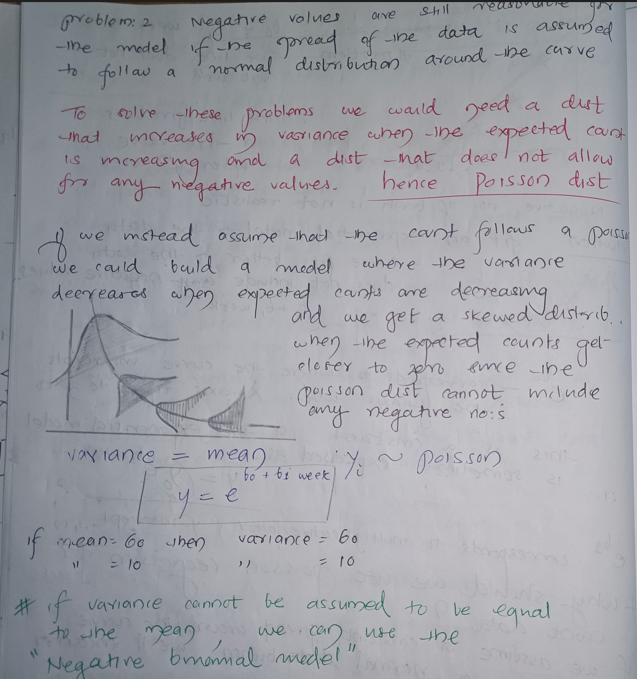 problem: 2 Negative values are still reasonable for
the model if the spread of the data is assumed
to follow a normal distribution around the curve
To solve these problems we would need a dist
that increases in variance when the expected count
is increasing and a dist that does not allow
for any negative values. hence Poisson dist
If we instead assume that the count follows a poiss
we could build a model where the variance
decreases when expected counts are decreasing
and we get a skewed distrib..
when the expected counts get
closer to zero since the
poisson dist cannot include
any negative no:s
variance = mean yi ~ poisson
y = e^b0 + b1 week
if mean = 60 then variance = 60
" = 10 " = 10
# if variance cannot be assumed to be equal
to the mean, we can use the
"Negative binomial model"